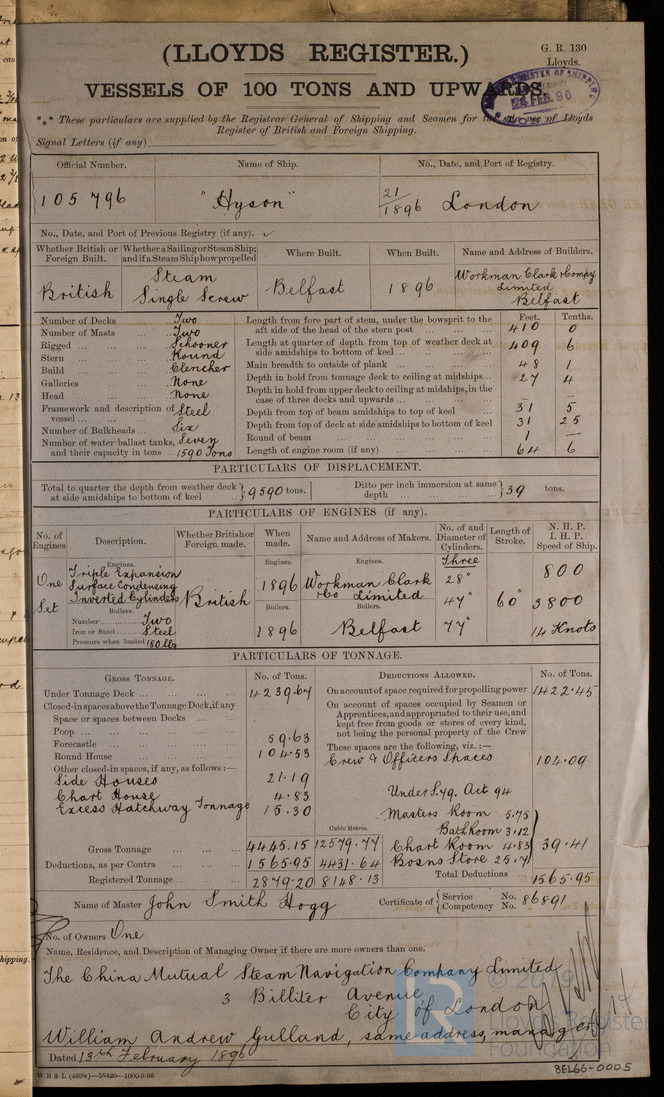 (LLOYDS REGISTER.)
G. R. 130
Lloyds.
VESSELS OF 100 TONS AND UPWARDS.
24 FEB. 96
*** These particulars are supplied by the Registrar General of Shipping and Seamen for the sole use of Lloyds
Register of British and Foreign Shipping.
Signal Letters (if any)
Official Number. Name of Ship. No., Date, and Port of Registry.
105796 "Hyson" 21/1896 London
No., Date, and Port of Previous Registry (if any).
Whether British or Foreign Built. Whether a Sailing or Steam Ship; and if a Steam Ship how propelled Where Built. When Built. Name and Address of Builders.
British Steam Single Screw Belfast 1896 Workman Clark & Compy Limited Belfast
Number of Decks ... Two
Number of Masts ... Two
Rigged ... Schooner
Stern ... Round
Build ... Clencher
Galleries ... None
Head ... None
Framework and description of vessel ... Steel
Number of Bulkheads ... Six
Number of water ballast tanks, Seven
and their capacity in tons ... 1590 Tons
Feet. Tenths.
Length from fore part of stem, under the bowsprit to the aft side of the head of the stern post ... 410 0
Length at quarter of depth from top of weather deck at side amidships to bottom of keel ... 409 6
Main breadth to outside of plank ... 48 1
Depth in hold from tonnage deck to ceiling at midships ... 27 4
Depth in hold from upper deck to ceiling at midships, in the case of three decks and upwards ... — —
Depth from top of beam amidships to top of keel ... 31 5
Depth from top of deck at side amidships to bottom of keel 31 25
Round of beam ... 1 —
Length of engine room (if any) ... 64 6
PARTICULARS OF DISPLACEMENT.
Total to quarter the depth from weather deck at side amidships to bottom of keel ... } 9590 tons. Ditto per inch immersion at same depth ... } 39 tons.
PARTICULARS OF ENGINES (if any).
No. of Engines Description. Whether British or Foreign made. When made. Name and Address of Makers. No. of and Diameter of Cylinders. Length of Stroke. N. H. P. I. H. P. Speed of Ship.
One Set
Engines.
Triple Expansion
Surface Condensing
Inverted Cylinders
Boilers.
Number ... Two
Iron or Steel ... Steel
Pressure when loaded 180 lbs
British
Engines.
1896
Boilers.
1896
Engines.
Workman Clark
& Co Limited
Boilers.
Belfast
Three
28"
47"
77"
60"
800
3800
14 Knots
PARTICULARS OF TONNAGE.
Gross Tonnage. No. of Tons.
Under Tonnage Deck ... 4239.67
Closed-in spaces above the Tonnage Deck, if any
Space or spaces between Decks ...
Poop ...
Forecastle ... 59.63
Round House ... 104.53
Other closed-in spaces, if any, as follows:—
Side Houses 21.19
Chart House 4.83
Excess Hatchway Tonnage 15.30
Cubic Metres.
Gross Tonnage ... 4445.15 12579.77
Deductions, as per Contra ... 1565.95 4431.64
Registered Tonnage ... 2879.20 8148.13
Deductions Allowed. No. of Tons.
On account of space required for propelling power 1422.45
On account of spaces occupied by Seamen or Apprentices, and appropriated to their use, and kept free from goods or stores of every kind, not being the personal property of the Crew
These spaces are the following, viz.:—
Crew & Officers Spaces 104.09
Under S. 79. Act 94
Masters Room 5.75
Bath Room 3.12
Chart Room 4.83 39.41
Bosns Store 25.71
Total Deductions ... 1565.95
Name of Master John Smith Hogg Certificate of { Service No. Competency No. 86891
No. of Owners One
Name, Residence, and Description of Managing Owner if there are more owners than one.
The China Mutual Steam Navigation Company Limited
3 Billiter Avenue
City of London
William Andrew Gulland, same address, manager
Dated 13th February 1896
W B & L (439w)—55420—1000-9-95
© 2019
Lloyd's Register
Foundation
BEL66-0005